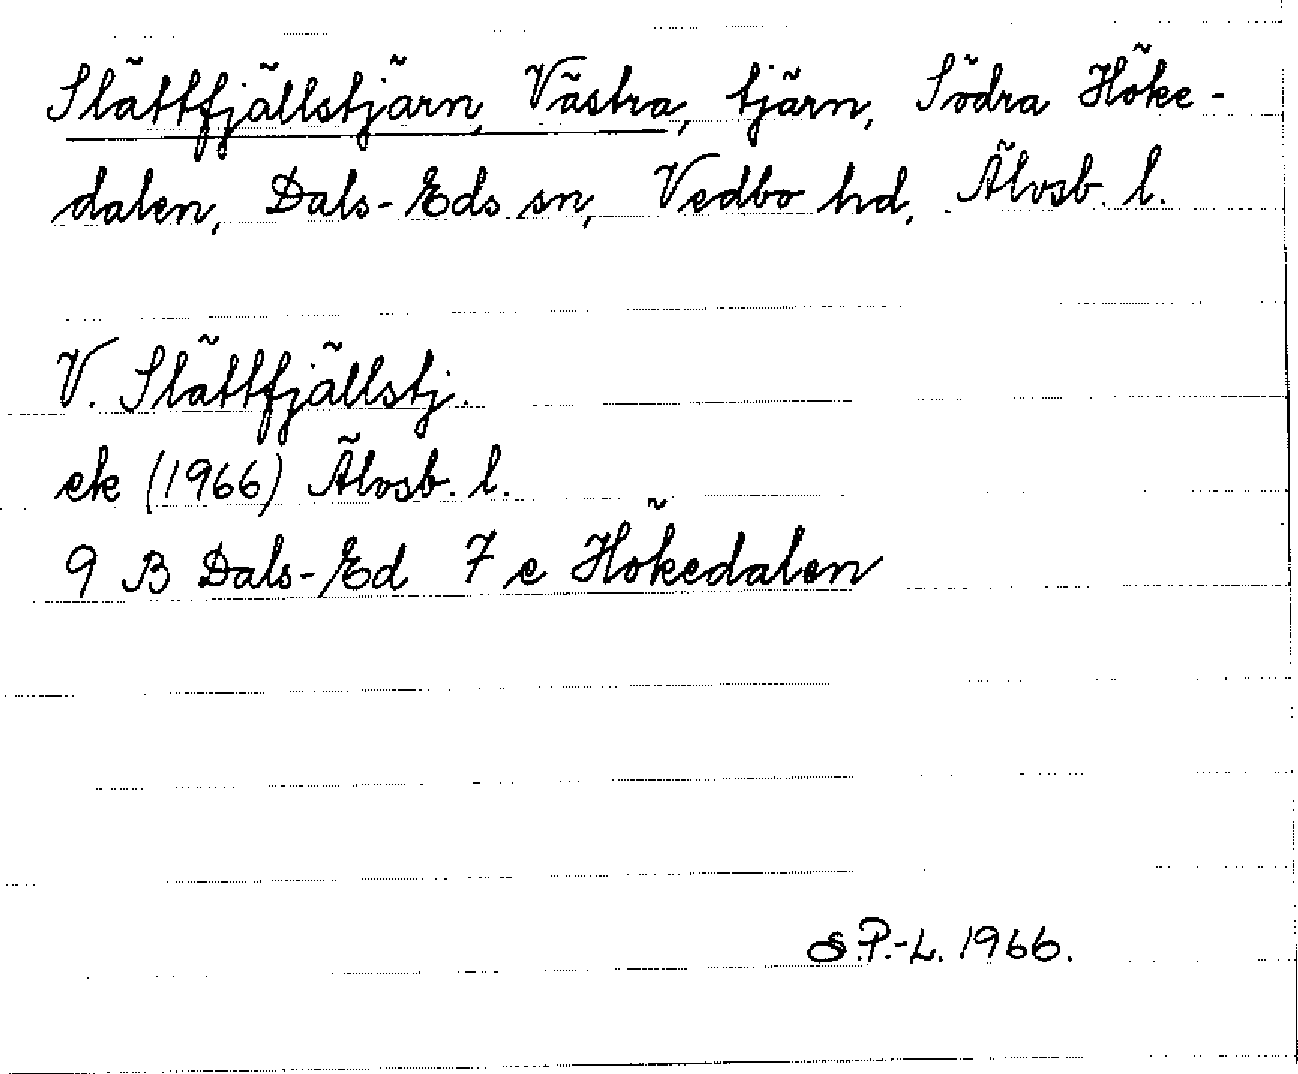 Slättfjällstjärn, Västra, tjärn, Södra Höke-
dalen, Dals-Eds sn, Vedbo hd, Älvsb. l.
V. Slättfjällstj.
ek (1966) Älvsb. l.
9 B Dals-Ed 7 e Hökedalen
S.P.-L. 1966.